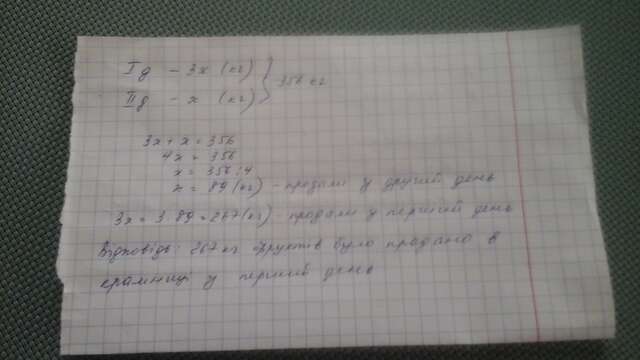 I д - 3x (кг) } 356 кг
II д - x (кг)
3x + x = 356
4x = 356
x = 356 : 4
x = 89 (кг) - продали у другий день
3x = 3·89 = 267 (кг) - продали у перший день
Відповідь: 267 кг фруктів було продано в
крамниці у перший день